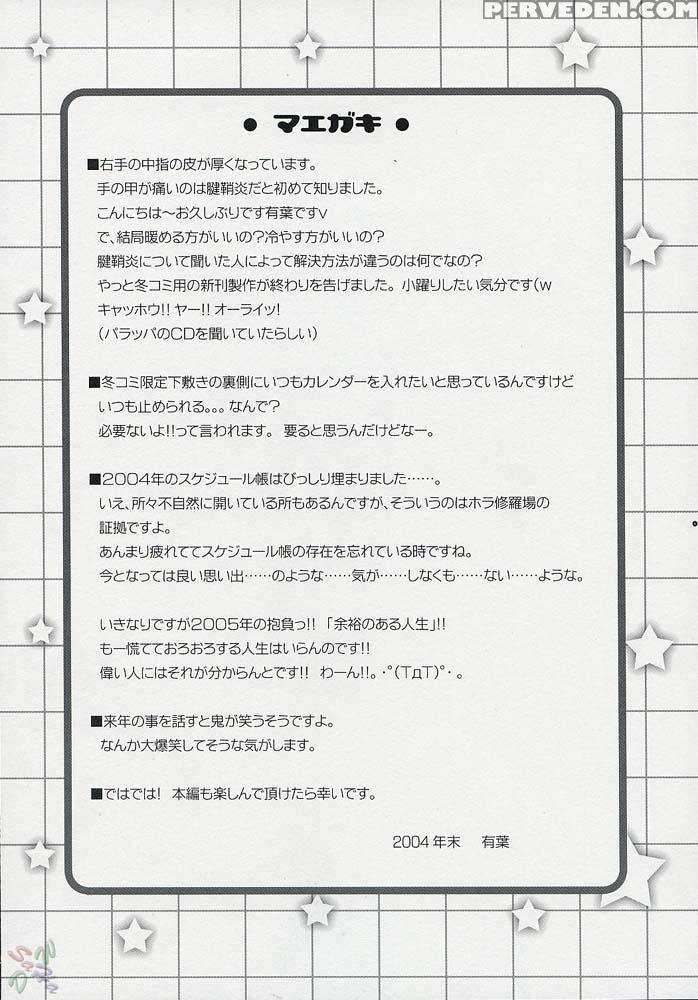 PERVEDEN.COM
● マエガキ ●
■右手の中指の皮が厚くなっています。
手の甲が痛いのは腱鞘炎だと初めて知りました。
こんにちは～お久しぶりです有葉ですv
で、結局暖める方がいいの?冷やす方がいいの?
腱鞘炎について聞いた人によって解決方法が違うのは何でなの?
やっと冬コミ用の新刊製作が終わりを告げました。小躍りしたい気分です(w
キャッホウ!! ヤー!! オーライッ!
(パラッパのCDを聞いていたらしい)
■冬コミ限定下敷きの裏側にいつもカレンダーを入れたいと思っているんですけど
いつも止められる。。。なんで?
必要ないよ!!って言われます。 要ると思うんだけどなー。
■2004年のスケジュール帳はびっしり埋まりました……。
いえ、所々不自然に開いている所もあるんですが、そういうのはホラ修羅場の
証拠ですよ。
あんまり疲れててスケジュール帳の存在を忘れている時ですね。
今となっては良い思い出……のような……気が……しなくも……ない……ような。
いきなりですが2005年の抱負っ!! 「余裕のある人生」!!
もー慌てておろおろする人生はいらんのです!!
偉い人にはそれが分からんとです!! わーん!!。・°(TдT)°・。
■来年の事を話すと鬼が笑うそうですよ。
なんか大爆笑してそうな気がします。
■ではでは! 本編も楽しんで頂けたら幸いです。
2004年末 有葉